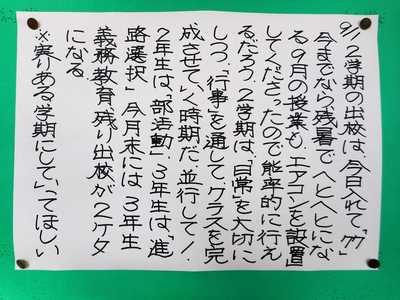 9/1 2学期の出校は、今日入れて「77」
今までなら、残暑で へとへとにな
る9月の授業も、エアコンを設置
してくださったので能率的に行え
るだろう。2学期は、「日常」を大切に
しつつ、「行事」を通してクラスを完
成させていく時期だ、並行して!
2年生は、「部活動」、3年生は、「進
路選択」 今月末には 3年生
義務教育、残り出校が2ケタ
になる
※実りある学期にしていってほしい